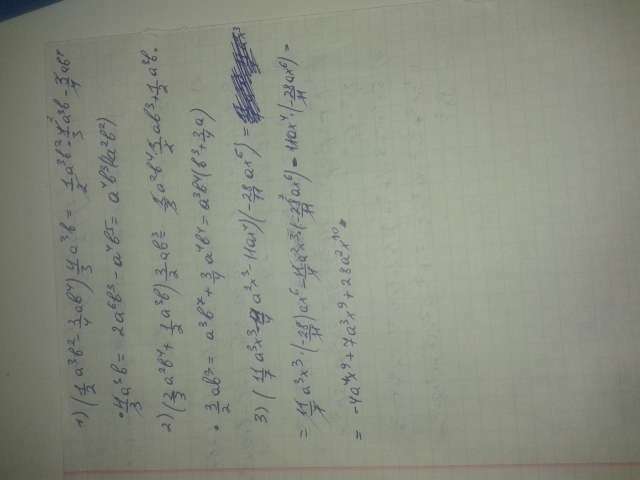 1) (1/2 a³b² - 3/4 ab⁴) 4/3 a³b = 1/2 a³b² · 4/3 a³b - 3/4 ab⁴
· 4/3 a³b = 2a⁶b³ - a⁴b⁵ = a⁴b³(2a²b²)
2) (2/3 a²b⁴ + 1/2 a³b) 3/2 ab³ = 2/3 a²b⁴ · 3/2 ab³ + 1/2 a³b ·
· 3/2 ab³ = a³b⁷ + 3/4 a⁴b⁴ = a³b⁴(b³ + 3/4 a)
3) (11/7 a³x³ - 11/4 a²x³ - 11ax⁴)(-28/11 ax⁶) =
= 11/7 a³x³ · (-28/11) ax⁶ - 11/4 a²x³ · (-28/11 ax⁶) - 11ax⁴ · (-28/11 ax⁶) =
= -4a⁴x⁹ + 7a³x⁹ + 28a²x¹⁰